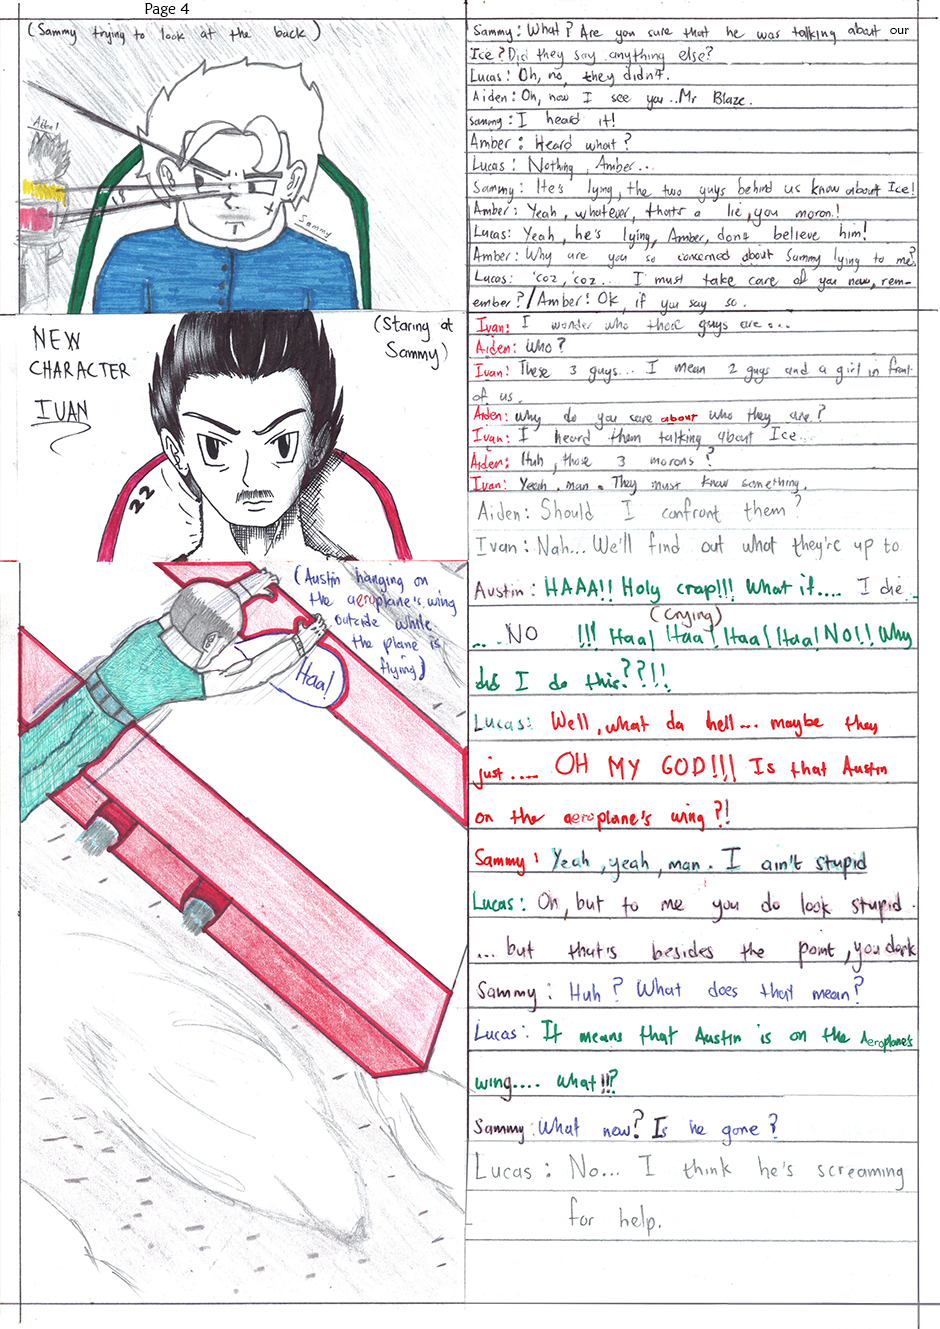 Page 4
(Sammy trying to look at the back)
Aiden!
18
Sammy
Sammy: What? Are you sure that he was talking about our
Ice? Did they say anything else?
Lucas: Oh, no, they didn't.
Aiden: Oh, now I see you..Mr Blaze.
Sammy: I heard it!
Amber: Heard what?
Lucas: Nothing, Amber...
Sammy: He's lying, the two guys behind us know about Ice!
Amber: Yeah, whatever, that's a lie, you moron!
Lucas: Yeah, he's lying, Amber, don't believe him!
Amber: Why are you so concerned about Sammy lying to me?
Lucas: 'coz, 'coz... I must take care of you now, rem-
ember?/Amber: Ok, if you say so.
NEW
CHARACTER
IVAN
(Staring at
Sammy)
22
Ivan: I wonder who those guys are...
Aiden: Who?
Ivan: These 3 guys... I mean 2 guys and a girl in front
of us.
Aiden: Why do you care about who they are?
Ivan: I heard them talking about Ice...
Aiden: Huh, those 3 morons?
Ivan: Yeah, man. They must know something.
Aiden: Should I confront them?
Ivan: Nah... We'll find out what they're up to
(Austin hanging on
the aeroplane's wing
outside while
the plane is
flying)
Haa!
Austin: HAAA!! Holy crap!!! What if.... I die..
(Crying)
... NO !!! Haa! Haa! Haa! Haa! NO!! Why
did I do this??!!!
Lucas: Well, what da hell... maybe they
just..... OH MY GOD!!! Is that Austin
on the aeroplane's wing?!
Sammy: Yeah, yeah, man. I ain't stupid
Lucas: Oh, but to me you do look stupid.
... but that's besides the point, you dork
Sammy: Huh? What does that mean?
Lucas: It means that Austin is on the Aeroplane's
wing.... What!!!?
Sammy: What now? Is he gone?
Lucas: No... I think he's screaming
for help.